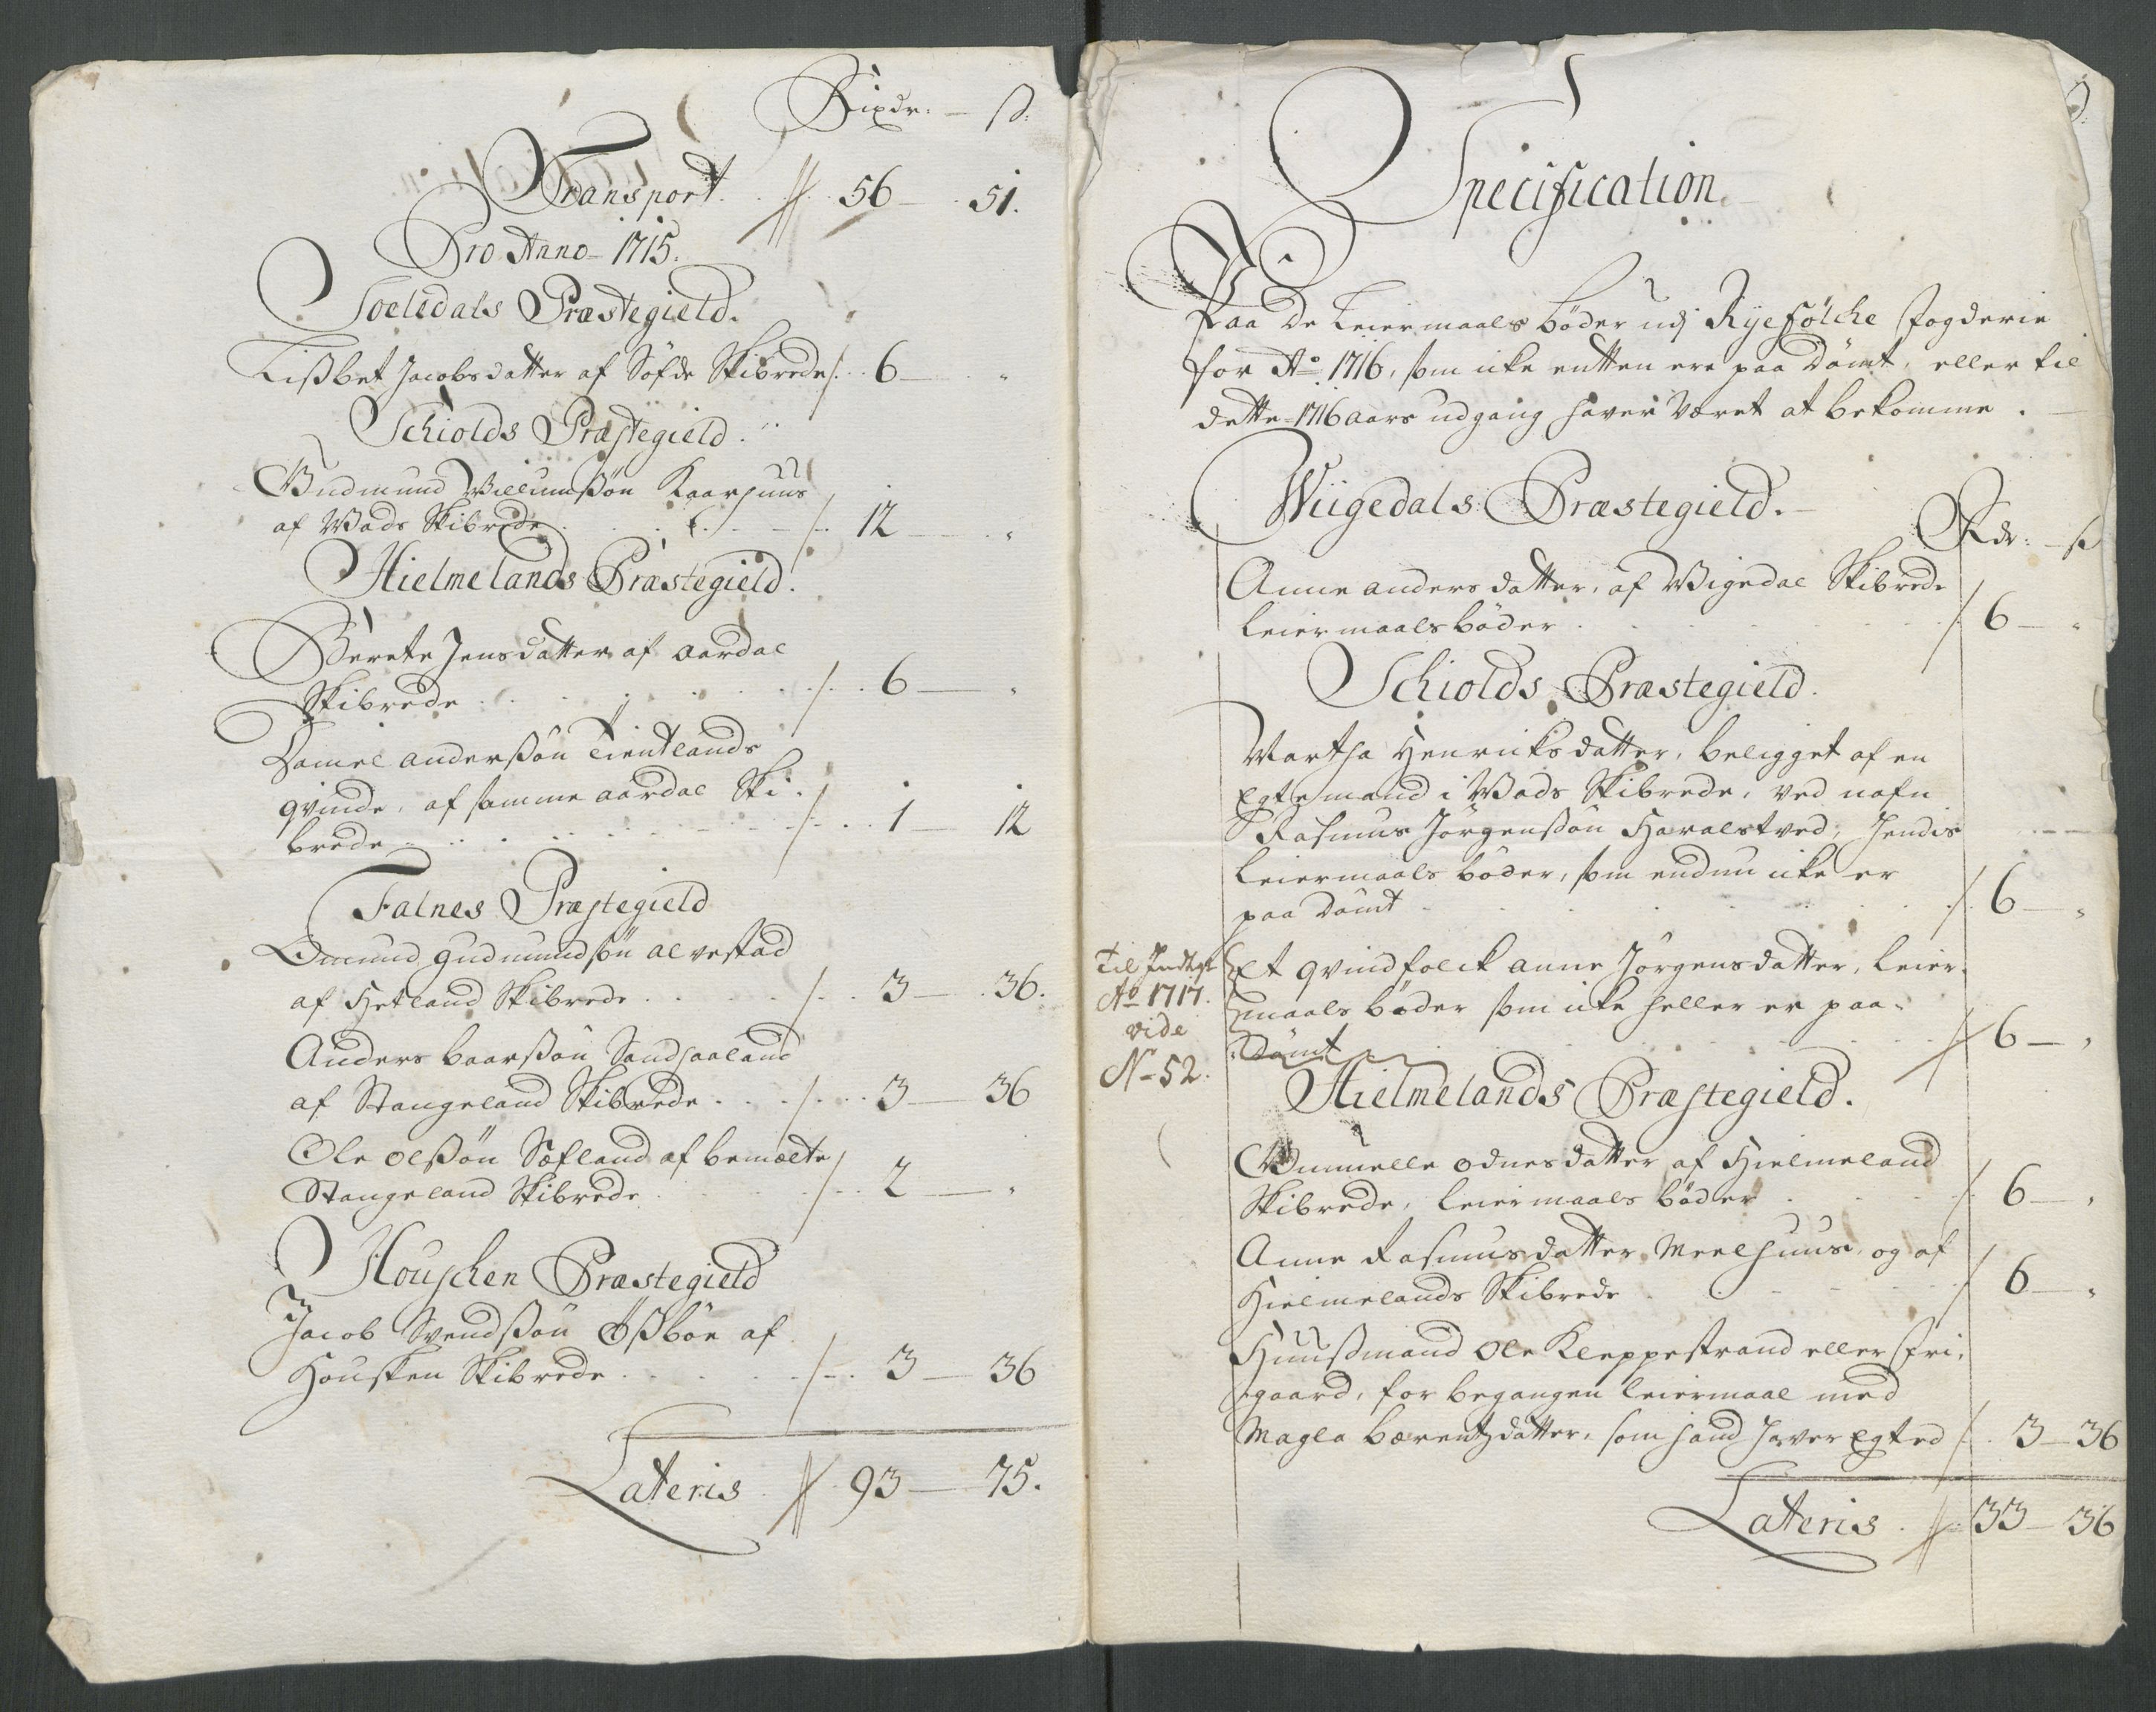 Rixdr: — ß:
Transport . . 56 — 51.
Pro Anno 1715.
Soeledals Præstegield.
Lißbet Jacobsdatter af Söfde Skibrede . 6 — "
Schiolds Præstegield.
Gudmund Villumßön Kaarhuus
af Vads Skibrede . . . 12 — "
Hielmelands Præstegield.
Berete Jensdatter af aardal
Skibrede . . . 6 — "
Daniel anderßön Tientlands
qvinde, af samme aardal Ski-
brede . . . 1 — 12
Falnes Præstegield
Omund gudmundßön alvestad
af Hetland Skibrede . . . 3 — 36.
Anders baarßön Sandhaaland
af Stangeland Skibrede . . . 3 — 36
Ole olßön Sæfland af bemælte
Stangeland Skibrede . . . 2 — "
Houschen Præstegield
Jacob Svendßön Ößböe af
Housken Skibrede . . . 3 — 36
Lateris . 93 — 75.
Specification
Paa de Leiermaals böder udj Ryefölche fogderie
for Ao 1716, som icke entten ere paa dömt, eller til
dette 1716 aars udgang haver været at bekomme.
Wiigedals Præstegield.
Rdr: — ß
Anne andersdatter, af Vigedal Skibrede
leiermaalsböder . . . 6 — "
Schiolds Præstegield.
Martha Henricksdatter, beligget af en
Egtemand i Vads Skibrede, ved nafn
Rasmus Jörgenßön Haralstved, hendis
leiermaals böder, som endnu icke er
paa dömt . . . 6 — "
Til Indtegt
Ao 1717.
vide
No 52.
Et qvindfolck anne Jörgensdatter, leier-
maals böder som icke heller er paa-
dömt . . . 6 — "
Hielmelands Præstegield.
Gunnelle odnesdatter af Hielmeland
Skibrede, leiermaals böder . . 6 — "
Anne Rasmusdatter Meelhuus, og af
Hielmelands Skibrede . . . 6 — "
Huußmand Ole Kleppestrand eller fri-
gaard, for begangen leiermaal med
Magla bærentzdatter, som hand haver Egted . 3 — 36
Lateris . 33 — 36